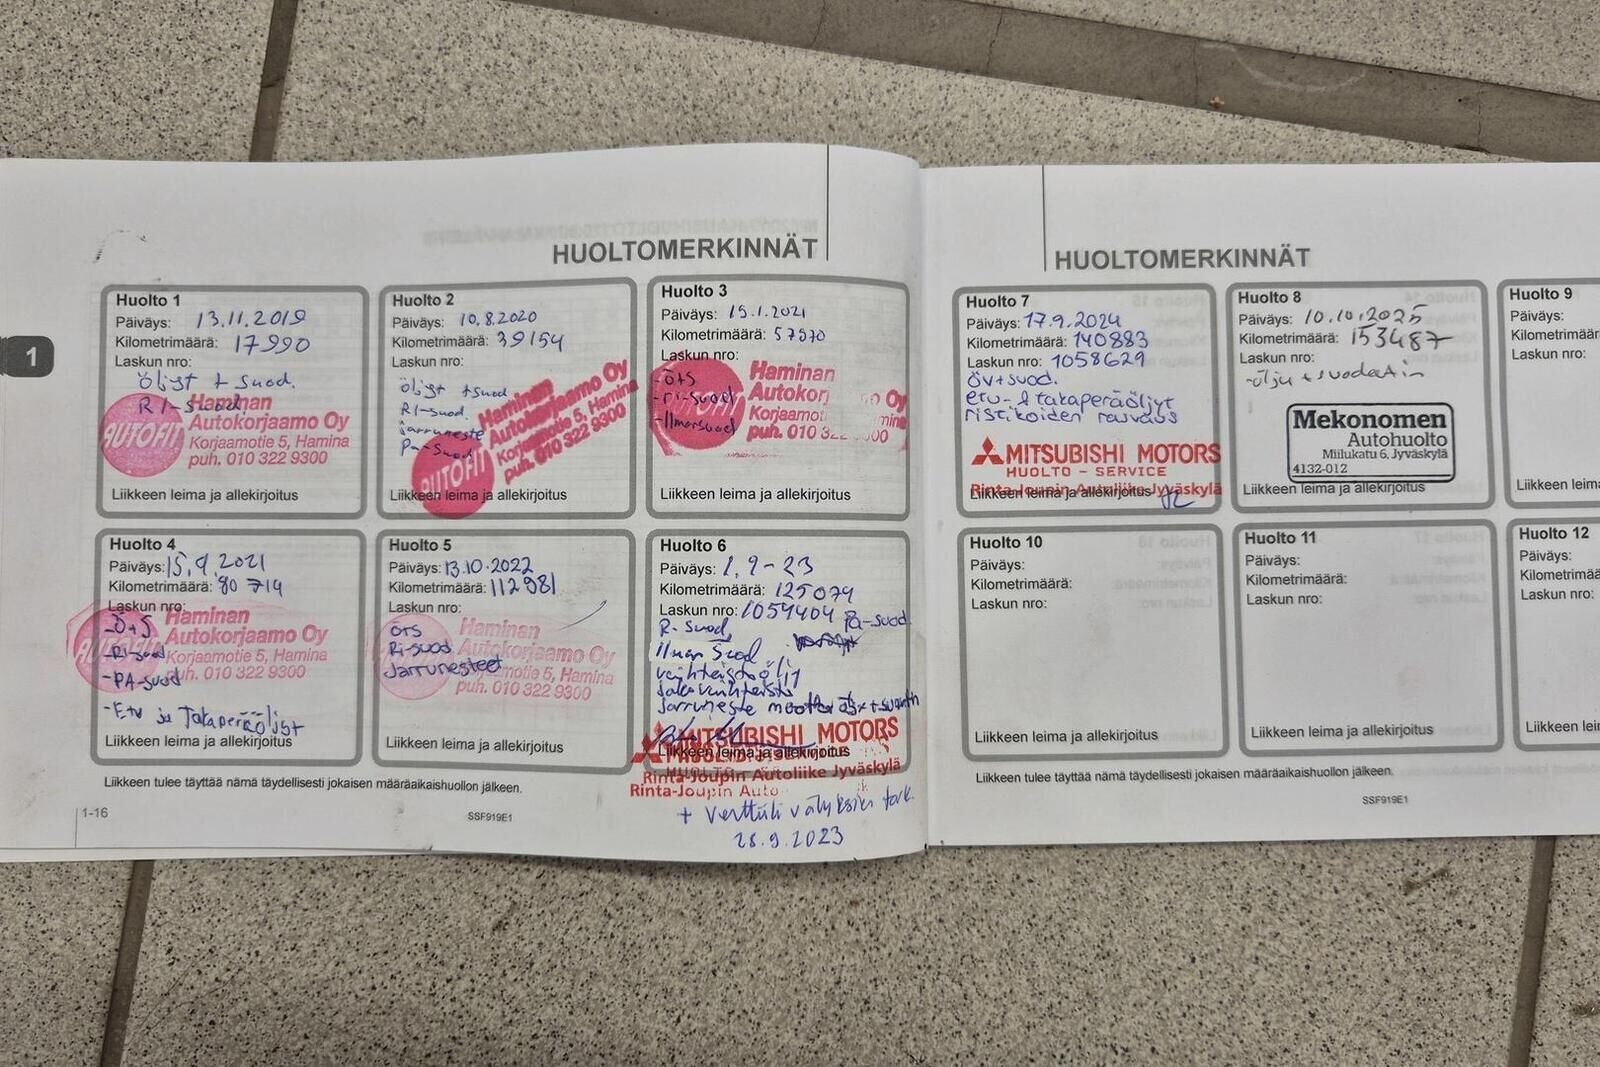 HUOLTOMERKINNÄT
1
Huolto 1
Päiväys: 13.11.2019
Kilometrimäärä: 17990
Laskun nro:
öljyt + suod.
RI-suod
AUTOFIT
Haminan
Autokorjaamo Oy
Korjaamotie 5, Hamina
puh. 010 322 9300
Liikkeen leima ja allekirjoitus
Huolto 2
Päiväys: 10.8.2020
Kilometrimäärä: 39154
Laskun nro:
öljyt + suod
RI-suod.
jarruneste
Pa-suod
AUTOFIT
Haminan
Autokorjaamo Oy
Korjaamotie 5, Hamina
puh. 010 322 9300
Liikkeen leima ja allekirjoitus
Huolto 3
Päiväys: 15.1.2021
Kilometrimäärä: 57970
Laskun nro:
-Ö+S
-ri-suod
-Ilmansuod
Haminan
Autokorj Oy
Korjaamot mina
puh. 010 32 00
Liikkeen leima ja allekirjoitus
Huolto 4
Päiväys: 15.9.2021
Kilometrimäärä: 80 714
Laskun nro:
-Ö+S
-RI-suod
-PA-suod
-Etu ja Takaperäöljyt
AUTOFIT
Haminan
Autokorjaamo Oy
Korjaamotie 5, Hamina
puh. 010 322 9300
Liikkeen leima ja allekirjoitus
Huolto 5
Päiväys: 13.10.2022
Kilometrimäärä: 112981
Laskun nro:
Ö+S
Ri-suod
Jarrunesteet
Haminan
Autokorjaamo Oy
Korjaamotie 5, Hamina
puh. 010 322 9300
Liikkeen leima ja allekirjoitus
Huolto 6
Päiväys: 1.9-23
Kilometrimäärä: 125079
Laskun nro: 1054404 Pa-suod
R-suod
Ilman suod
vaihteistoöljy
Jakovaihteisto
Jarruneste
MITSUBISHI MOTORS
HUOLTO - SERVICE
Liikkeen leima ja allekirjoitus
Rinta-Joupin Autoliike Jyväskylä
Rinta-Joupin Auto
+ venttiili välyksien tark.
28.9.2023
Liikkeen tulee täyttää nämä täydellisesti jokaisen määräaikaishuollon jälkeen.
1-16
SSF919E1
HUOLTOMERKINNÄT
Huolto 7
Päiväys: 17.9.2024
Kilometrimäärä: 140883
Laskun nro: 1058629
öv+suod.
etu- & takaperäöljyt
ristikoiden rasvaus
MITSUBISHI MOTORS
HUOLTO - SERVICE
Rinta-Joupin Autoliike Jyväskylä
Liikkeen leima ja allekirjoitus
Huolto 8
Päiväys: 10.10.2025
Kilometrimäärä: 153487
Laskun nro:
-öljy + suodatin
Mekonomen
Autohuolto
Miilukatu 6, Jyväskylä
4132-012
Liikkeen leima ja allekirjoitus
Huolto 9
Päiväys:
Kilometrimäärä
Laskun nro:
Liikkeen leima
Huolto 10
Päiväys:
Kilometrimäärä:
Laskun nro:
Liikkeen leima ja allekirjoitus
Huolto 11
Päiväys:
Kilometrimäärä:
Laskun nro:
Liikkeen leima ja allekirjoitus
Huolto 12
Päiväys:
Kilometrimäärä
Laskun nro:
Liikkeen leima
Liikkeen tulee täyttää nämä täydellisesti jokaisen määräaikaishuollon jälkeen.
SSF919E1